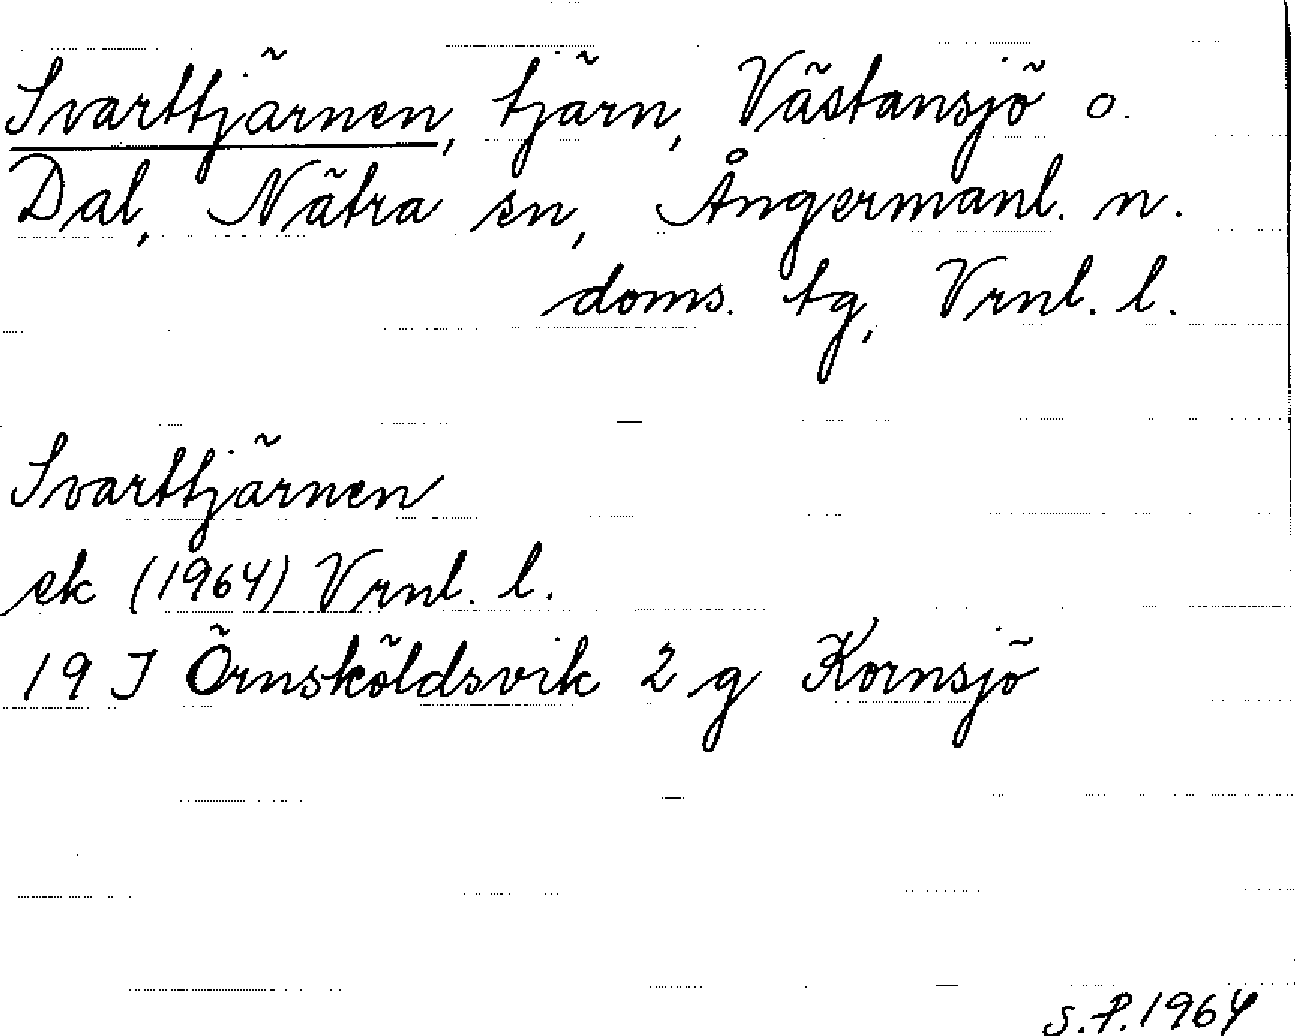 Svarttjärnen, tjärn, Västansjö o.
Dal, Nätra sn, Ångermanl. n.
doms. tg, Vrnl. l.
Svarttjärnen
ek (1964) Vrnl. l.
19 J Örnsköldsvik 2 g Kornsjö
S.P. 1964